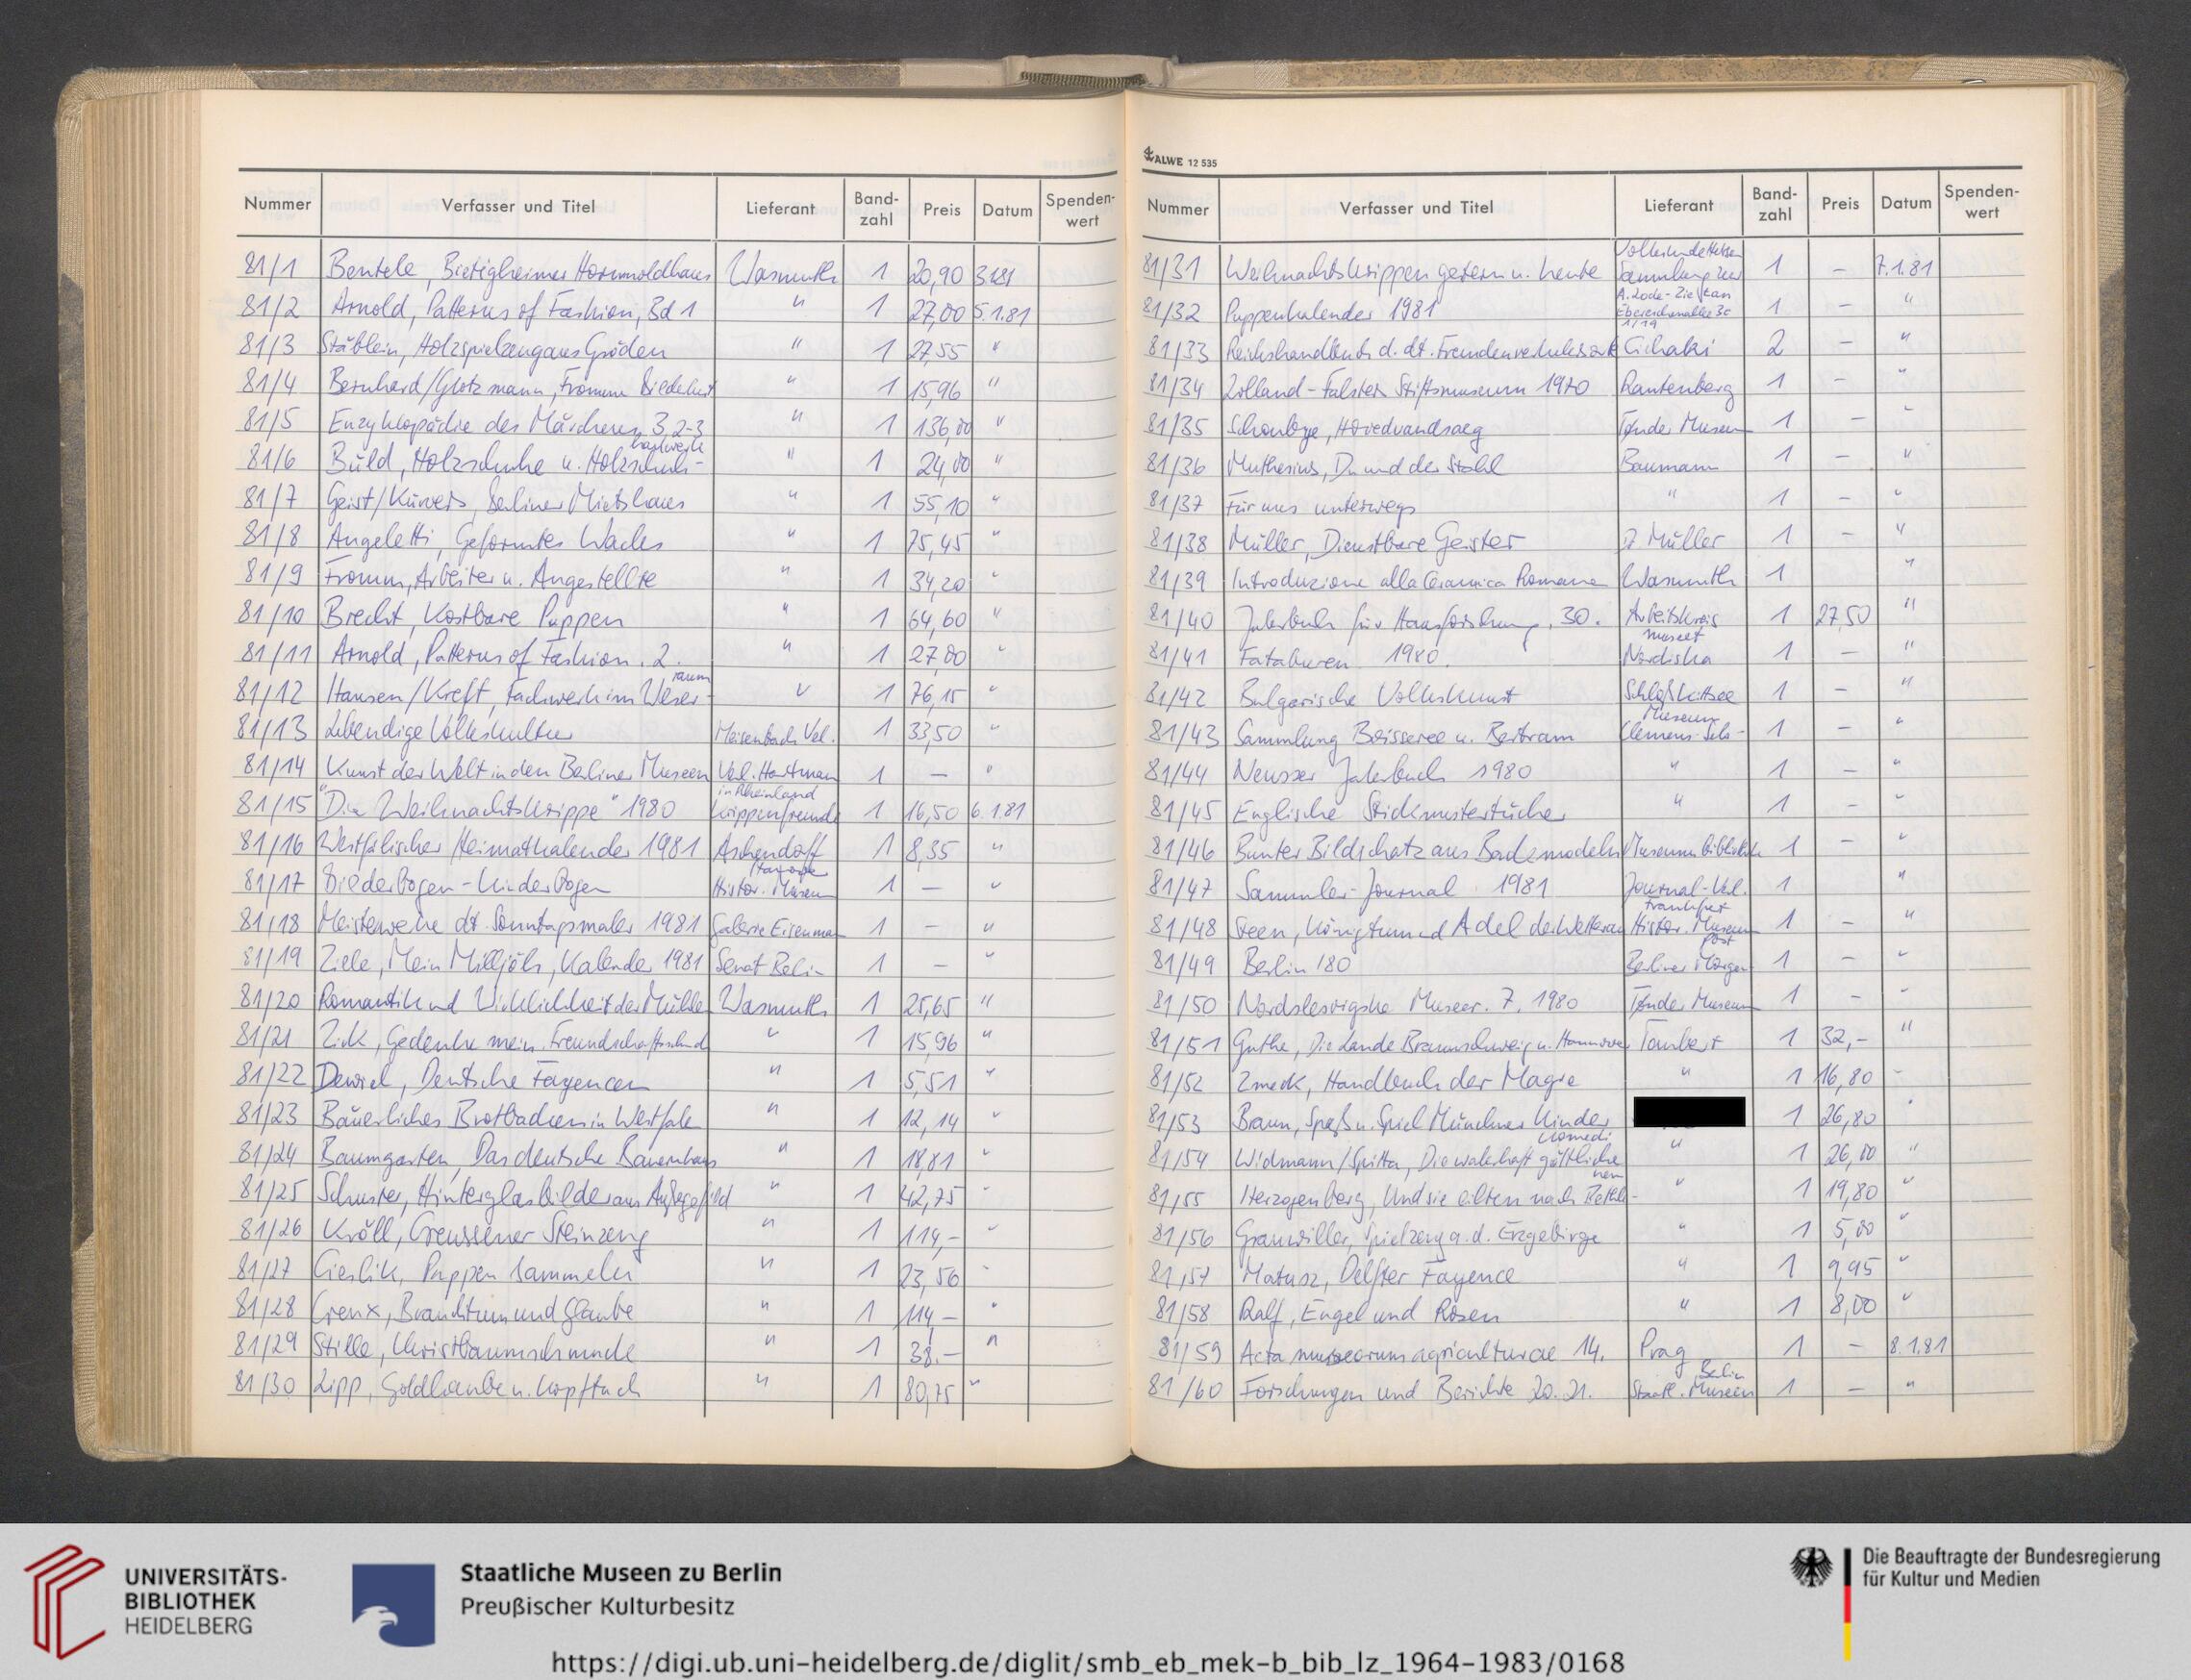 Nummer Verfasser und Titel Lieferant Band-zahl Preis Datum Spenden-wert
81/1 Bentele, Bietigheimer Hornmoldhaus Wasmuth 1 20,90 3.1.81
81/2 Arnold, Patterns of Fashion, Bd 1 " 1 27,00 5.1.81
81/3 Stäblein, Holzspielzeug aus Gröden " 1 27,55 "
81/4 Bernhard/Glotzmann, Fromme Bilderlust " 1 15,96 "
81/5 Enzyklopädie des Märchens 3,2-3 " 1 136,00 "
81/6 Buld, Holzschuhe u. Holzschuh-handwerk " 1 24,00 "
81/7 Geist/Kürvers, Berliner Mietshaus " 1 55,10 "
81/8 Angeletti, Geformtes Wachs " 1 75,45 "
81/9 Fromm, Arbeiter u. Angestellte " 1 34,20 "
81/10 Brecht, Kostbare Puppen " 1 64,60 "
81/11 Arnold, Patterns of Fashion. 2. " 1 27,00 "
81/12 Hansen/Kreft, Fachwerk im Weser-raum " 1 76,15 "
81/13 Lebendige Volkskultur Meisenbach Verl. 1 33,50 "
81/14 Kunst der Welt in den Berliner Museen Verl. Hartmann 1 – "
81/15 "Die Weihnachtskrippe" 1980 Krippenfreunde in Rheinland 1 16,50 6.1.81
81/16 Westfälischer Heimatkalender 1981 Aschendorff 1 8,35 "
81/17 Bilderbogen-Kinderbogen Histor. Museum 1 – "
81/18 Meisterwerke dt. Sonntagsmaler 1981 Galerie Eisenman 1 – "
81/19 Zille, Mein Milljöh, Kalender 1981 Senat Berlin 1 – "
81/20 Romantik und Wirklichkeit der Mühle Wasmuth 1 25,65 "
81/21 Zick, Gedenke mein. Freundschafts " 1 15,96 "
81/22 Dewiel, Deutsche Fayencen " 1 5,51 "
81/23 Bäuerliches Brotbacken in Westfalen " 1 12,14 "
81/24 Baumgarten, Das deutsche Bauernhaus " 1 18,81 "
81/25 Schuster, Hinterglasbilder aus " 1 42,75 "
81/26 Kröll, Creussener Steinzeug " 1 114,– "
81/27 Cieslik, Puppen sammeln " 1 23,56 "
81/28 Creux, Brauchtum und Glaube " 1 114,– "
81/29 Stille, Christbaumschmuck " 1 38.– "
81/30 Lipp, Goldhaube u. Kopftuch " 1 80,75 "
ALWE 12 535
Nummer Verfasser und Titel Lieferant Band-zahl Preis Datum Spenden-wert
81/31 Weihnachtskrippen gestern u. heute Sammlung 1 – 7.1.81
81/32 Puppenkalender 1981 1 – "
81/33 Reichshandbuch d. dt. Fremdenverkehrsorte Cichaki 2 – "
81/34 Lolland-Falsters Stiftsmuseum 1970 Rautenberg 1 – "
81/35 Schoubye, Hovedvandsaeg Tønder Museum 1 – "
81/36 Muthesius, Du und der Stahl Baumann 1 – "
81/37 Für uns unterwegs " 1 – "
81/38 Müller, Dienstbare Geister Müller 1 – "
81/39 Introduzione alla Ceramica Romana Wasmuth 1 "
81/40 Jahrbuch für Hausforschung. 30. Arbeitskreis 1 27,50 "
81/41 Fataburen. 1980. Nordiska museet 1 – "
81/42 Bulgarische Volkskunst Schloß Kittsee 1 – "
81/43 Sammlung Boisseree u. Bertram Clemens-Sels-Museum 1 – "
81/44 Neusser Jahrbuch 1980 " 1 – "
81/45 Englische Stickmustertücher " 1 – "
81/46 Bunter Bildschatz aus Backmodeln Museum Bibliothek 1 – "
81/47 Sammler-Journal 1981 Journal-Verl. 1 "
81/48 Steen, Königtum und Adel der Wetterau Histor. Museum Frankfurt 1 – "
81/49 Berlin 180 Berliner Morgenpost 1 – "
81/50 Nordslesvigske Museer. 7. 1980 Tønder Museum 1 – "
81/51 Guthe, Die Lande Braunschweig u. Hannover Tombert 1 32,– "
81/52 Zmeck, Handbuch der Magie " 1 16,80 "
81/53 Braun, Spaß u. Spiel Münchner Kinder 1 26,80 "
81/54 Widmann/Spitta, Die wahrhaft göttliche Komedi " 1 26,00 "
81/55 Herzogenberg, Und sie eilten nach Bethle-hem " 1 19,80 "
81/56 Spielzeug a. d. Erzgebirge " 1 5,00 "
81/57 Matusz, Delfter Fayence " 1 9,95 "
81/58 Ralf, Engel und Rosen " 1 8,00 "
81/59 Acta museorum agriculturae 14. Prag 1 – 8.1.81
81/60 Forschungen und Berichte 20. 21. Staatl. Museen Berlin 1 – "
UNIVERSITÄTS-
BIBLIOTHEK
HEIDELBERG
Staatliche Museen zu Berlin
Preußischer Kulturbesitz
Die Beauftragte der Bundesregierung
für Kultur und Medien
https://digi.ub.uni-heidelberg.de/diglit/smb_eb_mek-b_bib_lz_1964-1983/0168